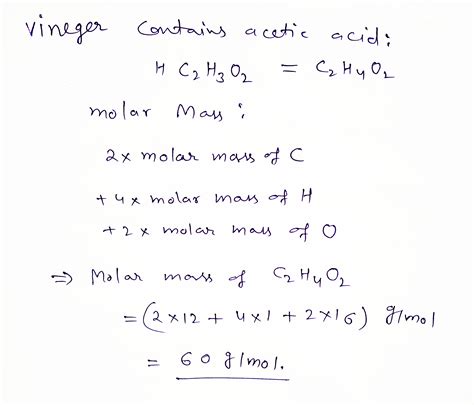 vineger contains acetic acid:
H C₂H₃O₂ = C₂H₄O₂
molar Mass:
2x molar mass of C
+ 4x molar mass of H
+ 2 x molar mass of O
⇒ Molar mass of C₂H₄O₂
= (2 x 12 + 4 x 1 + 2 x 16) g/mol
= 60 g/mol.